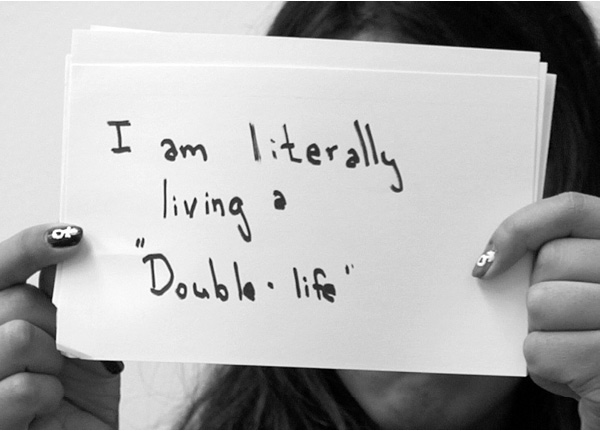 I am literally
living a
"Double-life"